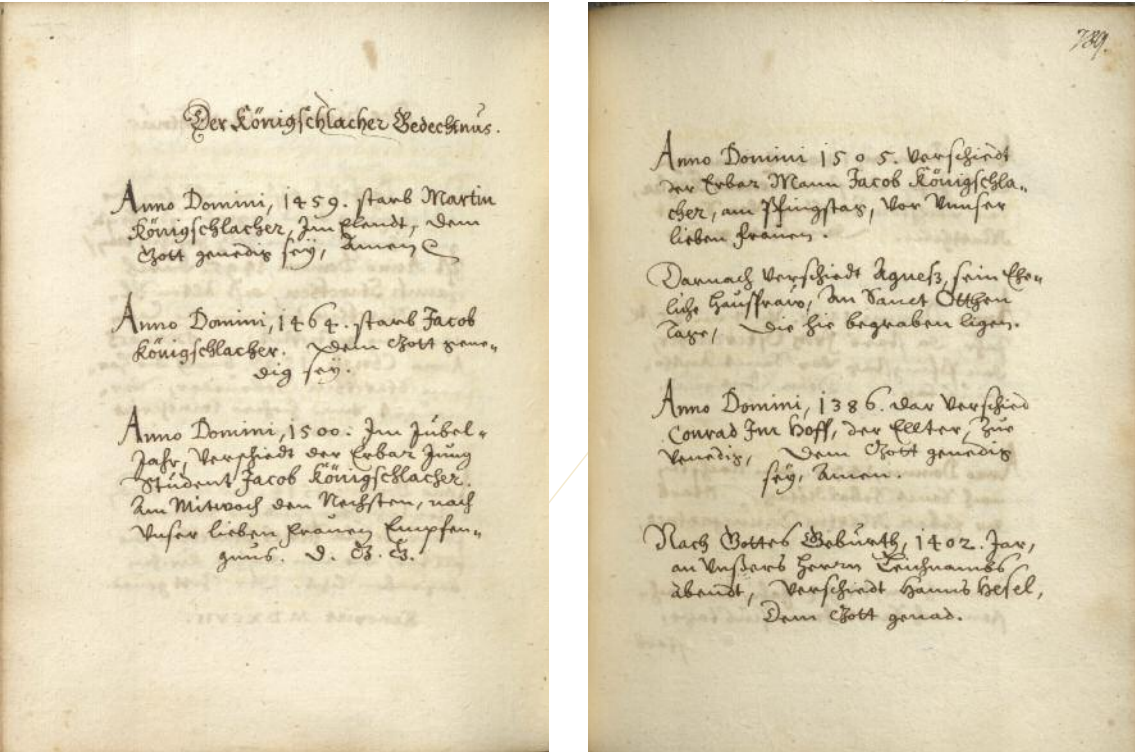 Der Königschlacher Gedechtnus.
Anno Domini, 1459. starb Martin
Königschlacher, Im Elendt, dem
Gott genedig seÿ, Amen
Anno Domini, 1464. starb Jacob
Königschlacher. dem Gott gene-
dig seÿ.
Anno Domini, 1500. Im Jubel-
Jahr, Verschiedt der Erbar Jung
Student Jacob Königschlacher.
Am Mitwoch den Nechsten, nach
Unser lieben Frauen Empfen-
gnus. D. G. G.
789.
Anno Domini 1505. Verschiedt
der Erbar Mann Jacob Königschla-
cher, am Pfingstag, Vor Unnser
lieben Frauen.
Darnach Verschiedt Agnes, sein Ehe-
liche Hausfraw, An Sanct Otthen
Tage, die hie begraben ligen.
Anno Domini, 1386. dar Verschied
Conrad Im Hoff, der Ellter, zue
Venedig, Dem Gott genedig
seÿ, Amen.
Nach Gottes Geburth, 1402. Jar,
an Unsers Herrn Leichnambs
abendt, Verschiedt Hanns Hesel,
Dem Gott genad.